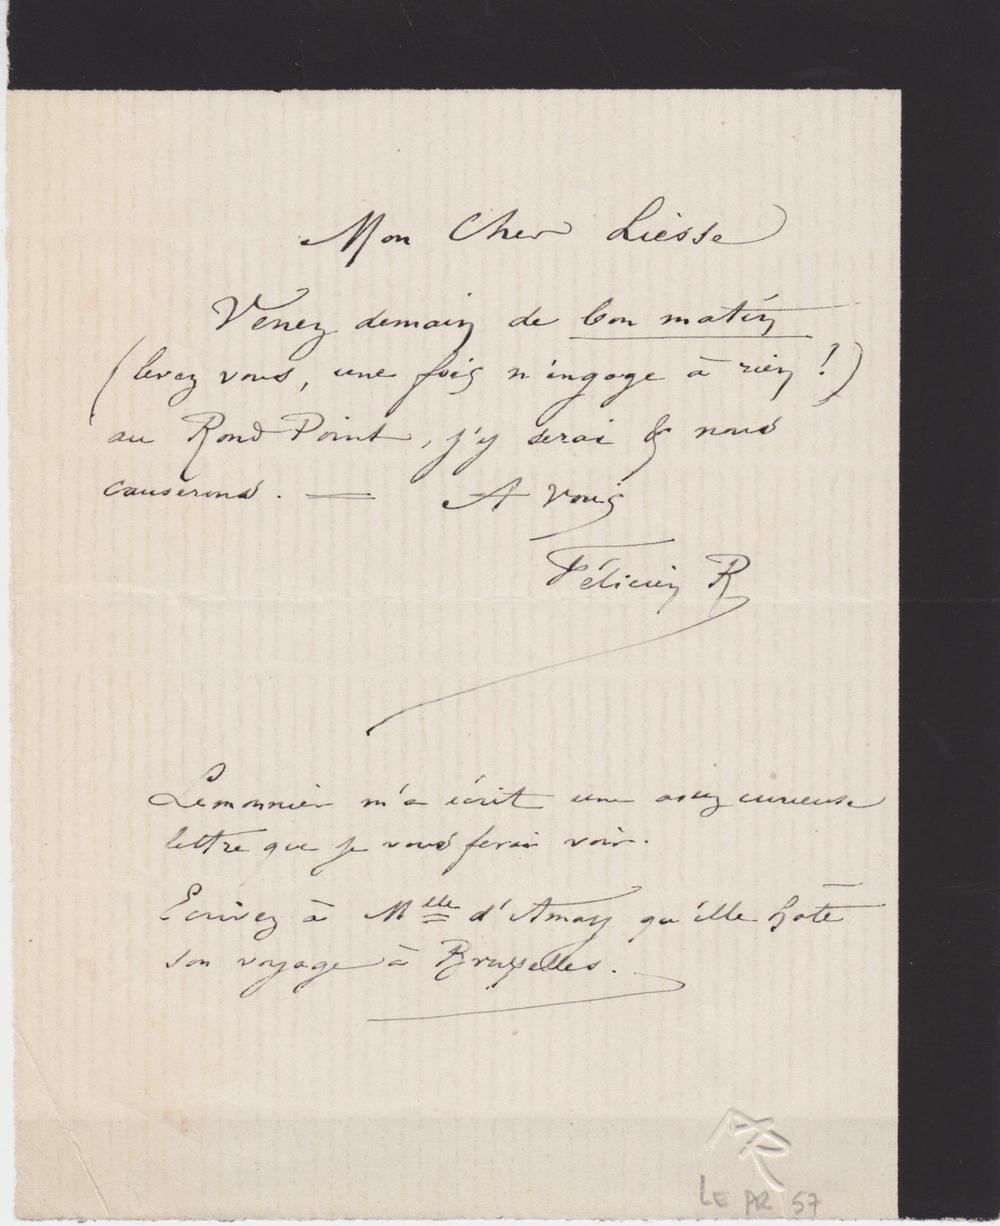 Mon Cher Liesse
Venez demain de bon matin
(levez vous, une fois n'engage à rien !)
au Rond Point, j'y serai & nous
causerons. — A vous
Félicien R
Lemonnier m'a écrit une assez curieuse
lettre que je vous ferai voir.
Ecrivez à Mlle d'Amay qu'elle hâte
son voyage à Bruxelles.
LE PR 57